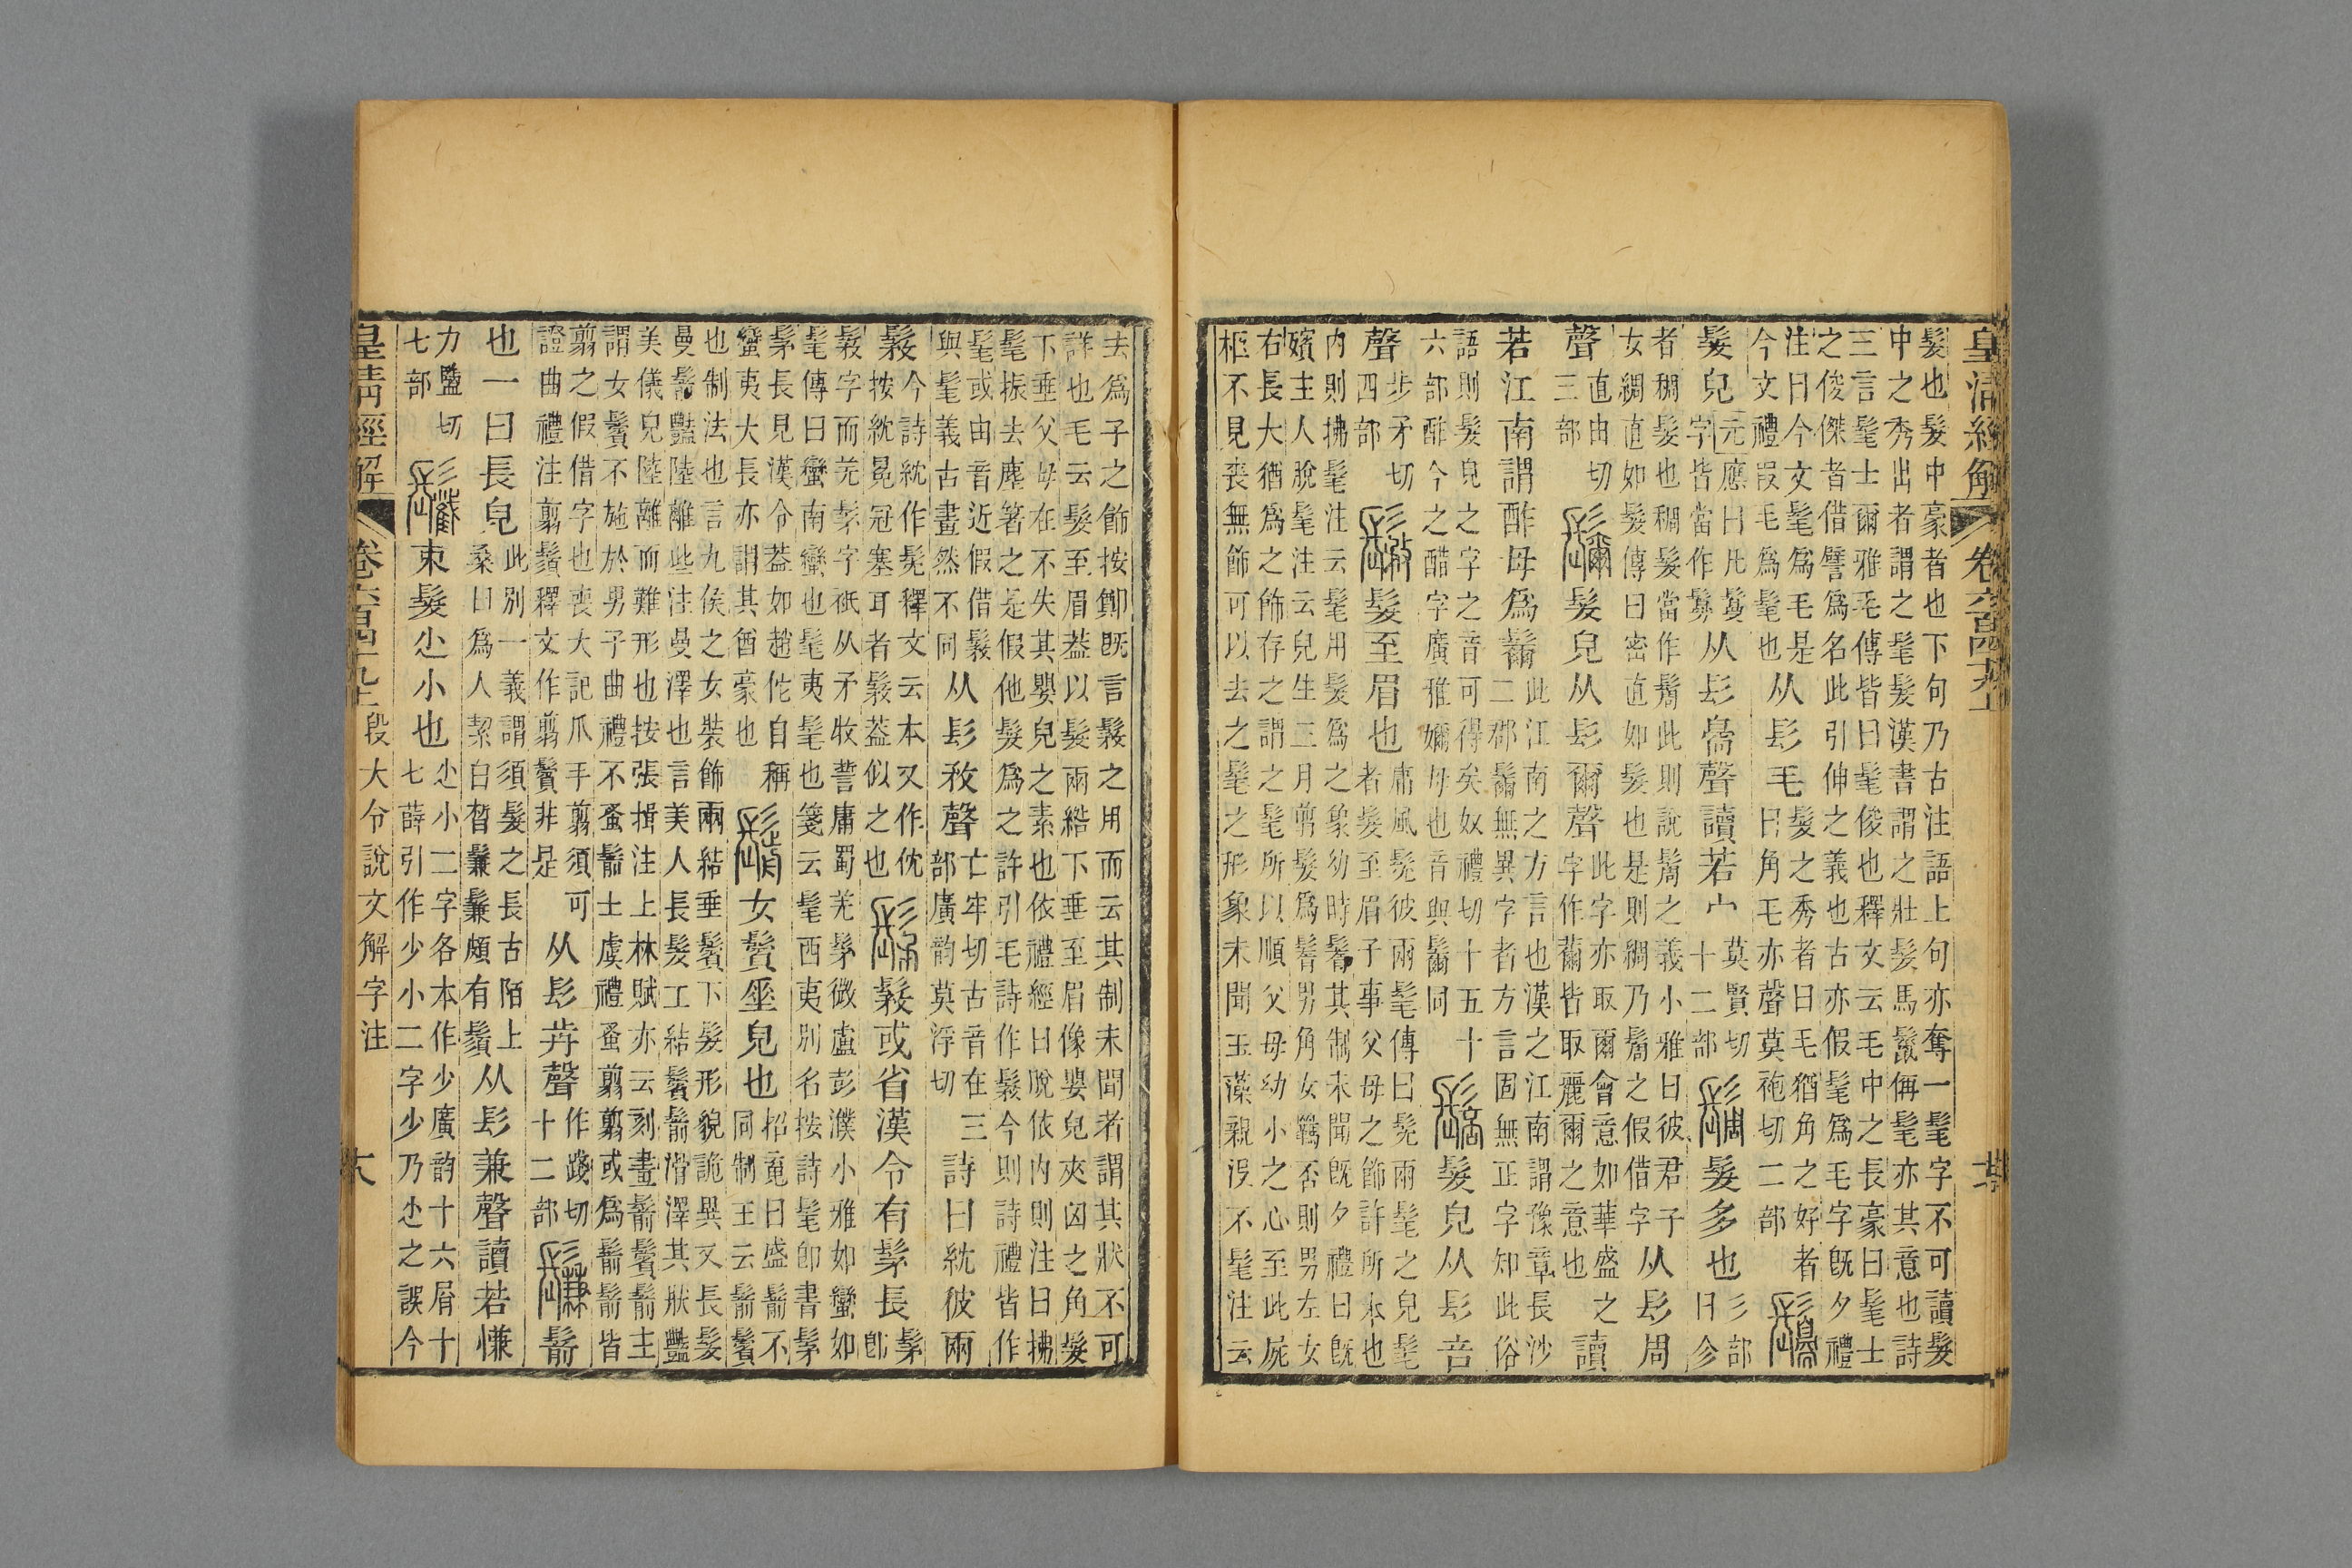 皇清經解
髮也髮中豪者也下句乃古注語上句亦奪一髦字不可讀髮
中之秀出者謂之髦髮漢書謂之壯髮馬鬛偁髦亦其意也詩
三言髦士爾雅毛傳皆曰髦俊也釋文云毛中之長豪曰髦士
之俊傑者借譬爲名此引伸之義也古亦假髦爲毛字旣夕禮
注曰今文髦爲毛是
今文禮叚毛爲髦也
从髟毛
髮之秀者曰毛猶角之好者
曰角毛亦聲莫袍切二部
髮皃
元應曰凡鬘
字皆當作
从髟臱聲讀若宀
莫賢切
十二部
髮多也
彡部
曰㐱
者稠髮也稠髮當作䯾此則說䯾之義小雅曰彼君子
女綢直如髮傳曰密直如髮也是則綢乃䯾之假借字
从髟周
聲
直由切
三部
髮皃从髟爾聲
此字亦取爾會意如華盛之
字作薾皆取麗爾之意也
讀
若江南謂酢母爲
此江南之方言也漢之江南謂豫章長沙
二郡無異字者方言固無正字知此俗
語則髮皃之字之音可得矣奴禮切十五十
六部酢今之醋字廣雅母也音與同
髮皃从髟咅
聲
步矛切
四部
髮至眉也
庸風髧彼兩髦傳曰髧兩髦之皃髦
者髮至眉子事父母之飾許所本也
內則拂髦注云髦用髮爲之象幼時鬌其制未聞旣夕禮曰旣
殯主人脫髦注云兒生三月剪髮爲鬌男角女羈否則男左女
右長大猶爲之飾存之謂之髦所以順父母幼小之心至此屍
柩不見喪無飾可以去之髦之形象未聞玉藻親沒不髦注云
去爲子之飾按鄭旣言髳之用而云其制未聞者謂其狀不可
詳也毛云髮至眉葢以髮兩綹下垂至眉像嬰兒夾囟之角髮
下垂父母在不失其嬰兒之素也依禮經曰脫依內則注曰拂
髦振去塵箸之是假他髮爲之許引毛詩作髳今則詩禮皆作
髦或由音近假借髳
與髦義古畫然不同
从髟敄聲
亡牢切古音在三
部廣韵莫浮切
詩曰紞彼兩
髳
今詩紞作髧釋文云本又作伔
按紞冕冠塞耳者髳葢似之也
髳或省漢令有髳長
髳
卽
髳字而羌髳字祇从矛牧誓庸蜀羌髳微盧彭濮小雅如蠻如
髦傳曰蠻南蠻也髦夷髦也箋云髦西夷別名按詩髦卽書髳
髳長見漢令葢如趙佗自稱
蠻夷大長亦謂其酋豪也
女鬢垂皃也
招䰟曰盛鬋不
同制王云鬋鬢
也制法也言九侯之女裝飾兩結垂鬢下髮形貌詭異又長髮
曼鬋豔陸離些注曼澤也言美人長髮工結鬢鬋滑澤其狀豔
美儀皃陸離而難形也按張揖注上林賦亦云刻畫鬋鬢鬋主
謂女鬢不施於男子曲禮不蚤鬋士虞禮蚤翦翦或爲鬋鬋皆
翦之假借字也喪大記爪手翦須可
證曲禮注翦鬚釋文作翦鬢非是
从髟歬聲
作踐切
十二部
鬋
也一曰長皃
此別一義謂須髮之長古陌上
桑曰爲人絜白晳鬑鬑頗有鬚
从髟兼聲讀若慊
力鹽切
七部
束髮尐小也
尐小二字各本作少廣韵十六屑十
七薛引作少小二字少乃尐之誤今
皇清經解
卷六百四十九上
段大令說文解字注